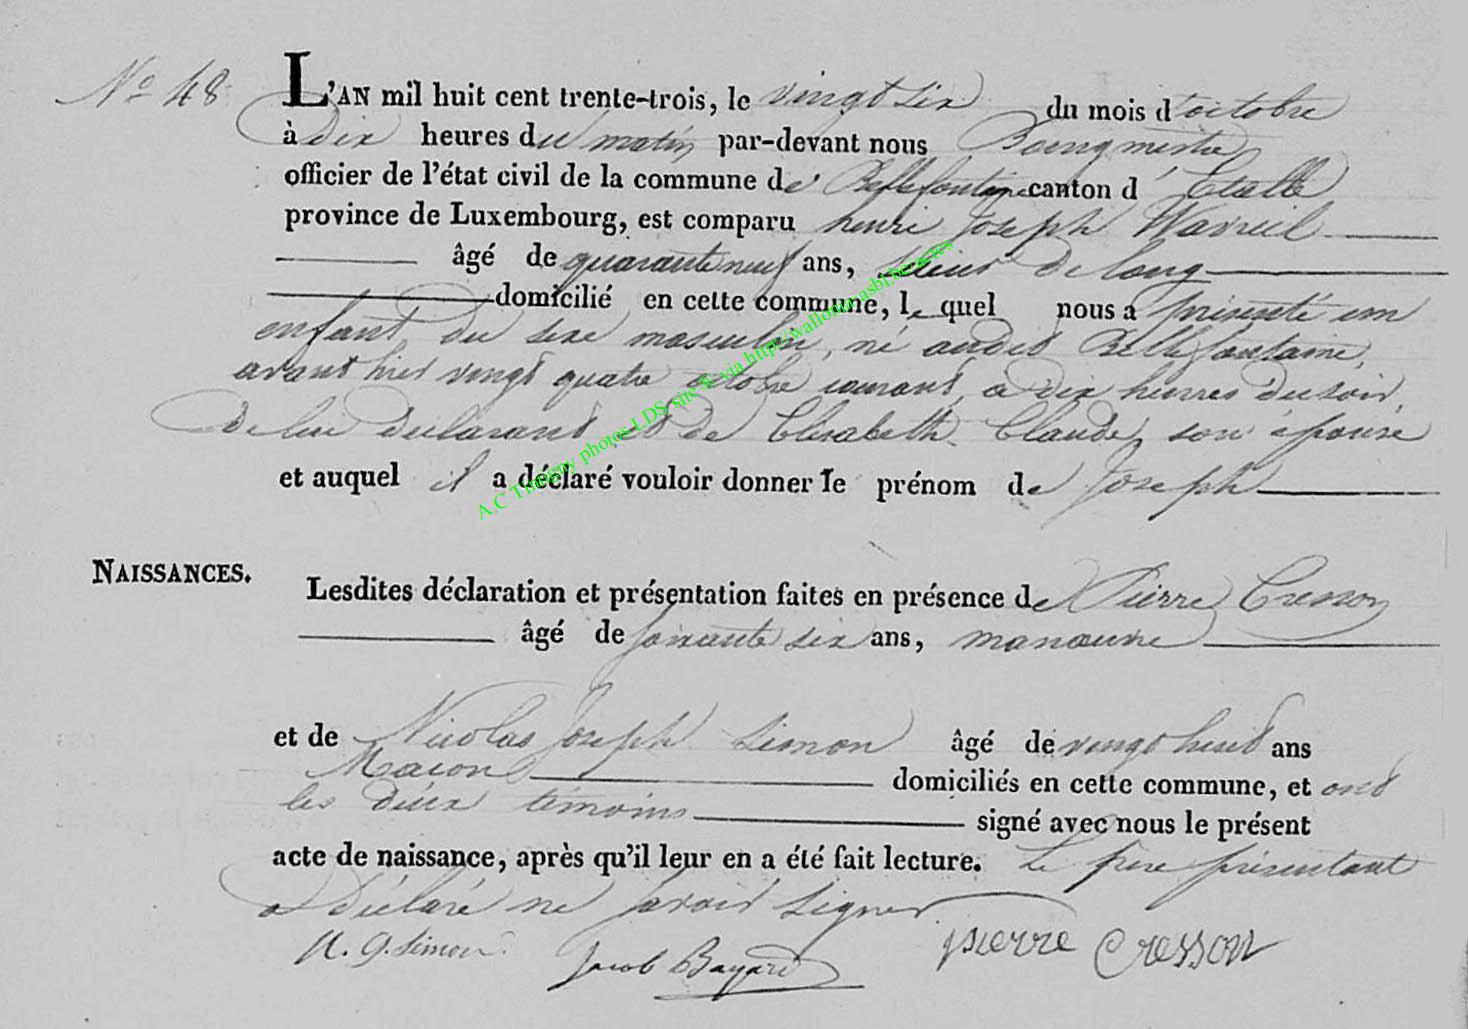 N° 48
L'AN mil huit cent trente-trois, le vingt six du mois d'octobre
à dix heures du matin par-devant nous Bourgmestre
officier de l'état civil de la commune de Bellefontaine canton d'Etalle
province de Luxembourg, est comparu henri Joseph Wavreil
âgé de quarante neuf ans, scieur de long
domicilié en cette commune, le quel nous a présenté un
enfant du sexe masculin, né audit Bellefontaine,
avant hier vingt quatre octobre courant, à dix heures du soir,
de lui déclarant et de Elisabeth Claude, son épouse
et auquel il a déclaré vouloir donner le prénom de Joseph
NAISSANCES.
Lesdites déclaration et présentation faites en présence de Pierre Cresson
âgé de soixante six ans, manœuvre
et de Nicolas Joseph Simon âgé de vingt huit ans
Macon domiciliés en cette commune, et ont
les deux témoins signé avec nous le présent
acte de naissance, après qu'il leur en a été fait lecture. Le pere présentant
a déclaré ne savoir signer
N. J. Simon Jacob Bayard pierre Cresson
A.C Tintigny photos LDS site © via http://wallonia.asbl.be/actes